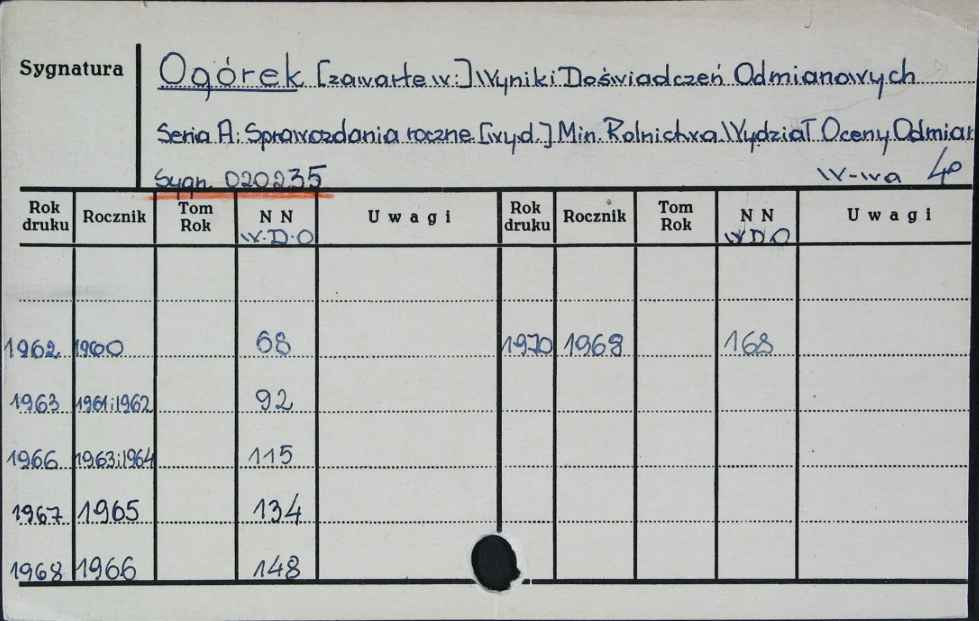 Sygnatura
Ogórek [zawarte w:] Wyniki Doświadczeń Odmianowych
Seria A: Sprawozdania roczne [wyd.] Min. Rolnictwa. Wydział Oceny Odmian
Sygn. 020235 W-wa 4°
Rok druku Rocznik Tom Rok N N W.D.O Uwagi Rok druku Rocznik Tom Rok N N W D O Uwagi
1962 1960 68 1970 1968 168
1963 1961 i 1962 92
1966 1963 i 1964 115
1967 1965 134
1968 1966 148